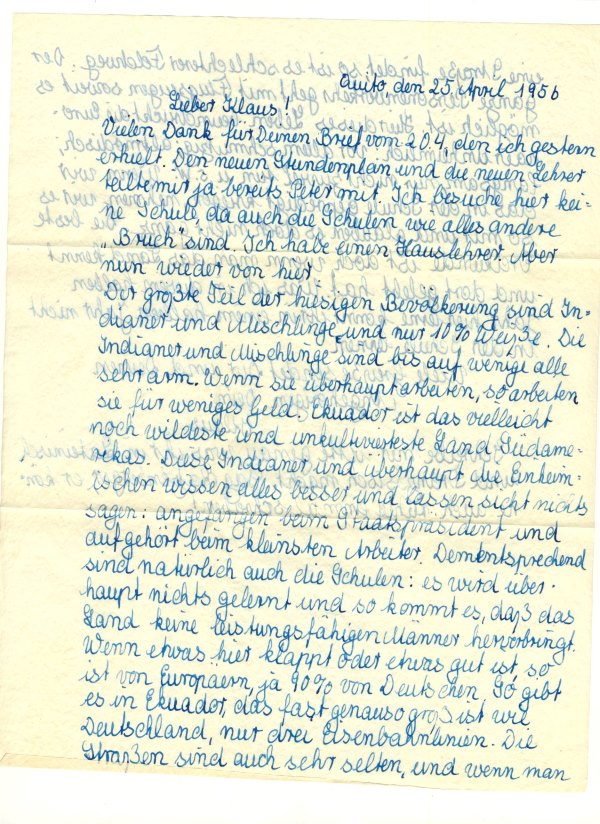 Quito, den 25. April 1956
Lieber Klaus!
Vielen Dank für Deinen Brief vom 20.4, den ich gestern
erhielt. Den neuen Stundenplan und die neuen Lehrer
teilte mir ja bereits Peter mit. Ich besuche hier kei-
ne Schule, da auch die Schulen wie alles andere
„Bruch" sind. Ich habe einen Hauslehrer. Aber
nun wieder von hier.
Der größte Teil der hiesigen Bevölkerung sind In-
dianer und Mischlinge, und nur 10% Weiße. Die
Indianer und Mischlinge sind bis auf wenige alle
sehr arm. Wenn sie überhaupt arbeiten, so arbeiten
sie für weniges Geld. Ekuador ist das vielleicht
noch wildeste und unkultivierteste Land Südame-
rikas. Diese Indianer und überhaupt die Einheim-
ischen wissen alles besser und lassen sicht nichts
sagen: angefangen beim Staatspräsident und
aufgehört beim kleinsten Arbeiter. Dementsprechend
sind natürlich auch die Schulen: es wird über-
haupt nichts gelernt und so kommt es, daß das
Land keine leistungsfähigen Männer hervorbringt.
Wenn etwas hier klappt oder etwas gut ist, so
ist von Europäern, ja 90% von Deutschen. So gibt
es in Ekuador, das fast genauso groß ist wie
Deutschland, nur drei Eisenbahnlinien. Die
Straßen sind auch sehr selten, und wenn man